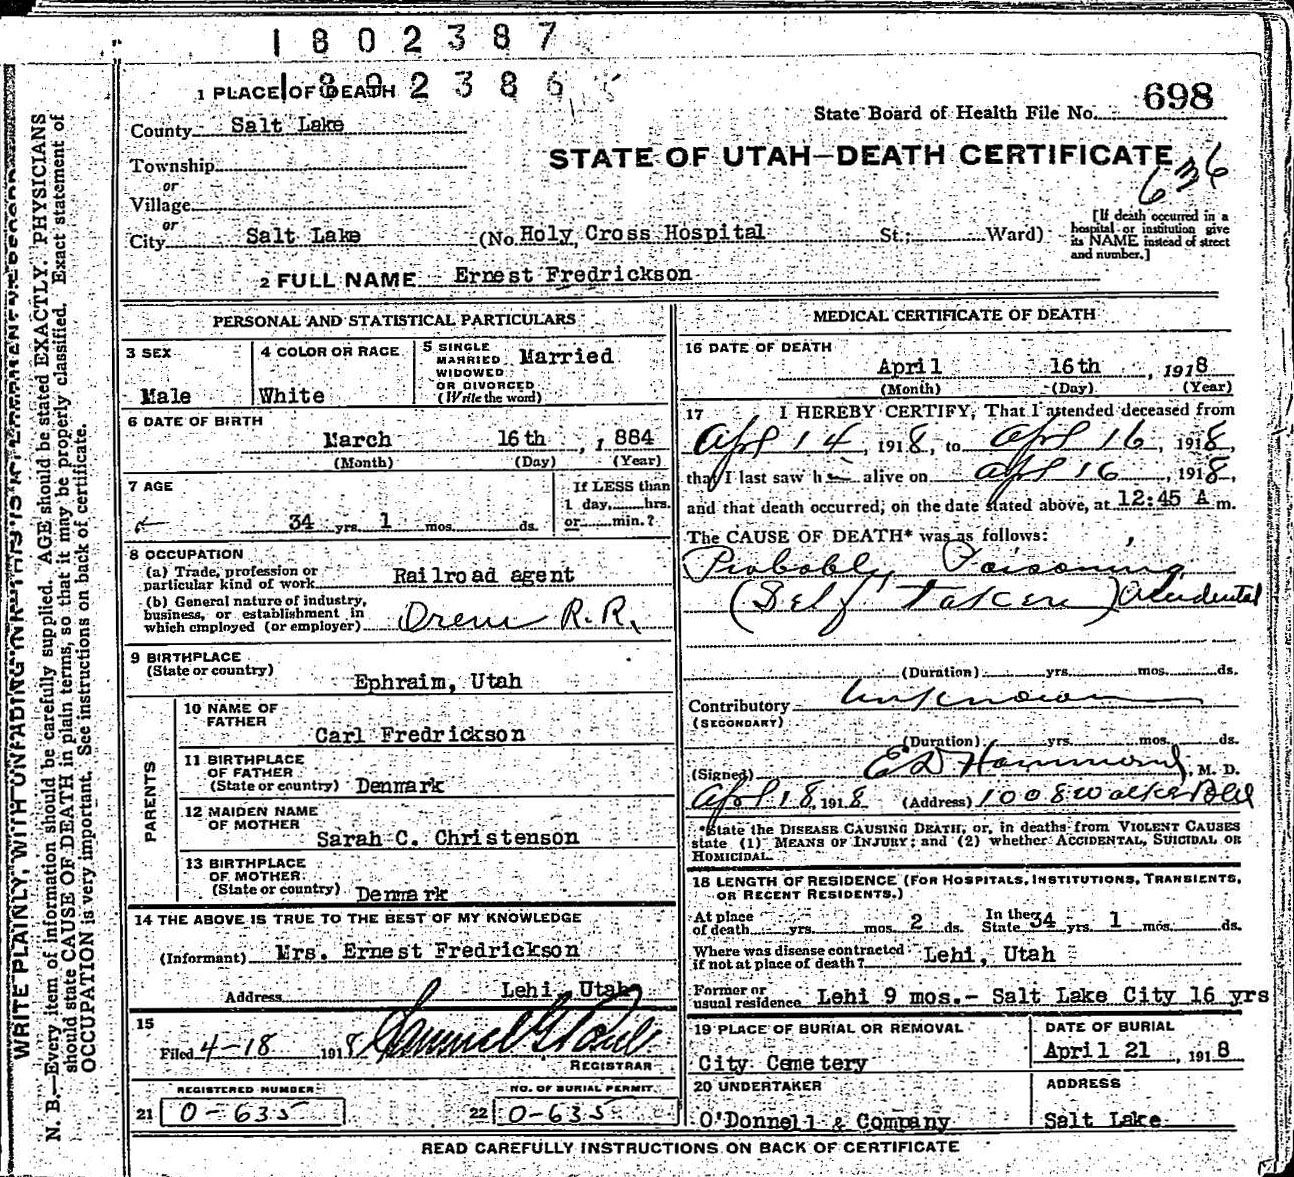 1802387
1802386
1 PLACE OF DEATH
State Board of Health File No. 698
County Salt Lake
STATE OF UTAH—DEATH CERTIFICATE
636
Township
or
Village
or
City Salt Lake (No. Holy Cross Hospital St.; Ward)
[If death occurred in a
hospital or institution give
its NAME instead of street
and number.]
2 FULL NAME Ernest Fredrickson
PERSONAL AND STATISTICAL PARTICULARS
3 SEX
Male
4 COLOR OR RACE
White
5 SINGLE
MARRIED
WIDOWED
OR DIVORCED
(Write the word)
Married
6 DATE OF BIRTH
March 16th, 1884
(Month) (Day) (Year)
7 AGE
34 yrs. 1 mos. ds.
If LESS than
1 day, hrs.
or min.?
8 OCCUPATION
(a) Trade, profession or
particular kind of work Railroad agent
(b) General nature of industry,
business, or establishment in
which employed (or employer) Orem R.R.
9 BIRTHPLACE
(State or country)
Ephraim, Utah
PARENTS
10 NAME OF
FATHER
Carl Fredrickson
11 BIRTHPLACE
OF FATHER
(State or country) Denmark
12 MAIDEN NAME
OF MOTHER
Sarah C. Christenson
13 BIRTHPLACE
OF MOTHER
(State or country) Denmark
14 THE ABOVE IS TRUE TO THE BEST OF MY KNOWLEDGE
(Informant) Mrs. Ernest Fredrickson
Address Lehi, Utah
15
Filed 4-18 1918
REGISTRAR
REGISTERED NUMBER
21 0-635
NO. OF BURIAL PERMIT
22 0-635
MEDICAL CERTIFICATE OF DEATH
16 DATE OF DEATH
April 16th, 1918
(Month) (Day) (Year)
17 I HEREBY CERTIFY, That I attended deceased from
Apl 14, 1918, to Apl 16, 1918,
that I last saw h alive on Apl 16, 1918,
and that death occurred, on the date stated above, at 12:45 A m.
The CAUSE OF DEATH* was as follows:
Probably Poisoning
(Self Taken) Accidental
(Duration) yrs. mos. ds.
Contributory Unknown
(SECONDARY)
(Duration) yrs. mos. ds.
(Signed) E D Hammond, M. D.
Apl 18, 1918 (Address) 1008 Walker Bld
*State the DISEASE CAUSING DEATH, or, in deaths from VIOLENT CAUSES
state (1) MEANS OF INJURY; and (2) whether ACCIDENTAL, SUICIDAL OR
HOMICIDAL.
18 LENGTH OF RESIDENCE (FOR HOSPITALS, INSTITUTIONS, TRANSIENTS,
OR RECENT RESIDENTS.)
At place
of death yrs. mos. 2 ds.
In the
State 34 yrs. 1 mos. ds.
Where was disease contracted
if not at place of death? Lehi, Utah
Former or
usual residence Lehi 9 mos.- Salt Lake City 16 yrs
19 PLACE OF BURIAL OR REMOVAL
City Cemetery
DATE OF BURIAL
April 21, 1918
20 UNDERTAKER
O'Donnell & Company
ADDRESS
Salt Lake
READ CAREFULLY INSTRUCTIONS ON BACK OF CERTIFICATE
WRITE PLAINLY, WITH UNFADING INK—THIS IS A PERMANENT RECORD
N. B.—Every item of information should be carefully supplied. AGE should be stated EXACTLY. PHYSICIANS
should state CAUSE OF DEATH in plain terms, so that it may be properly classified. Exact statement of
OCCUPATION is very important. See instructions on back of certificate.